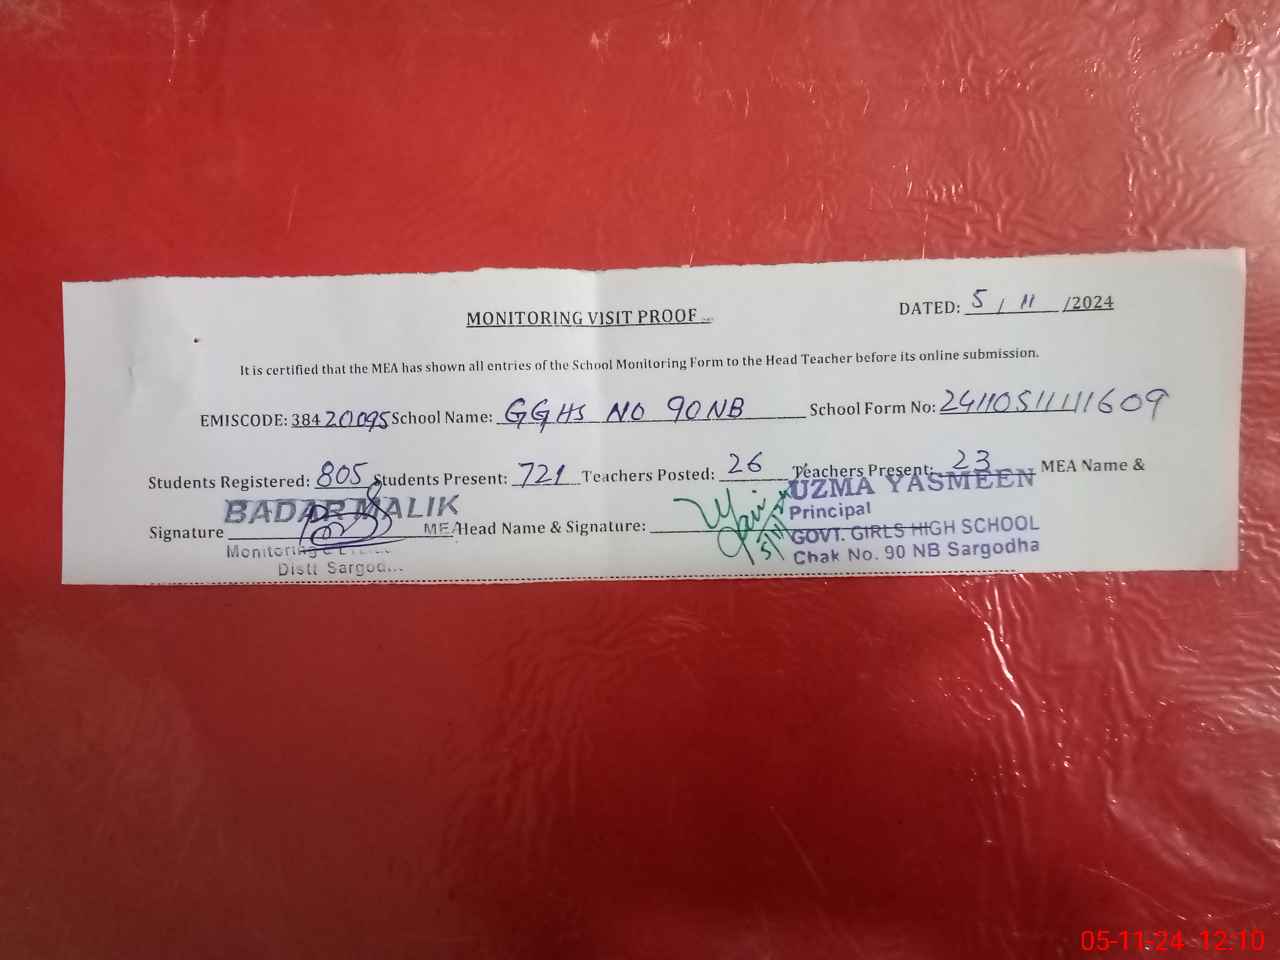 MONITORING VISIT PROOF
DATED: 5 / 11 /2024
It is certified that the MEA has shown all entries of the School Monitoring Form to the Head Teacher before its online submission.
EMISCODE: 38420095 School Name: GGHS NO 90 NB School Form No: 24110511111609
Students Registered: 805 Students Present: 721 Teachers Posted: 26 Teachers Present: 23 MEA Name &
Signature BADAR MALIK MEA Head Name & Signature: UZMA YASMEEN
Principal
GOVT. GIRLS HIGH SCHOOL
Chak No. 90 NB Sargodha
Monitoring &
Distt Sargod...
5/11/24
05-11-24 12:10